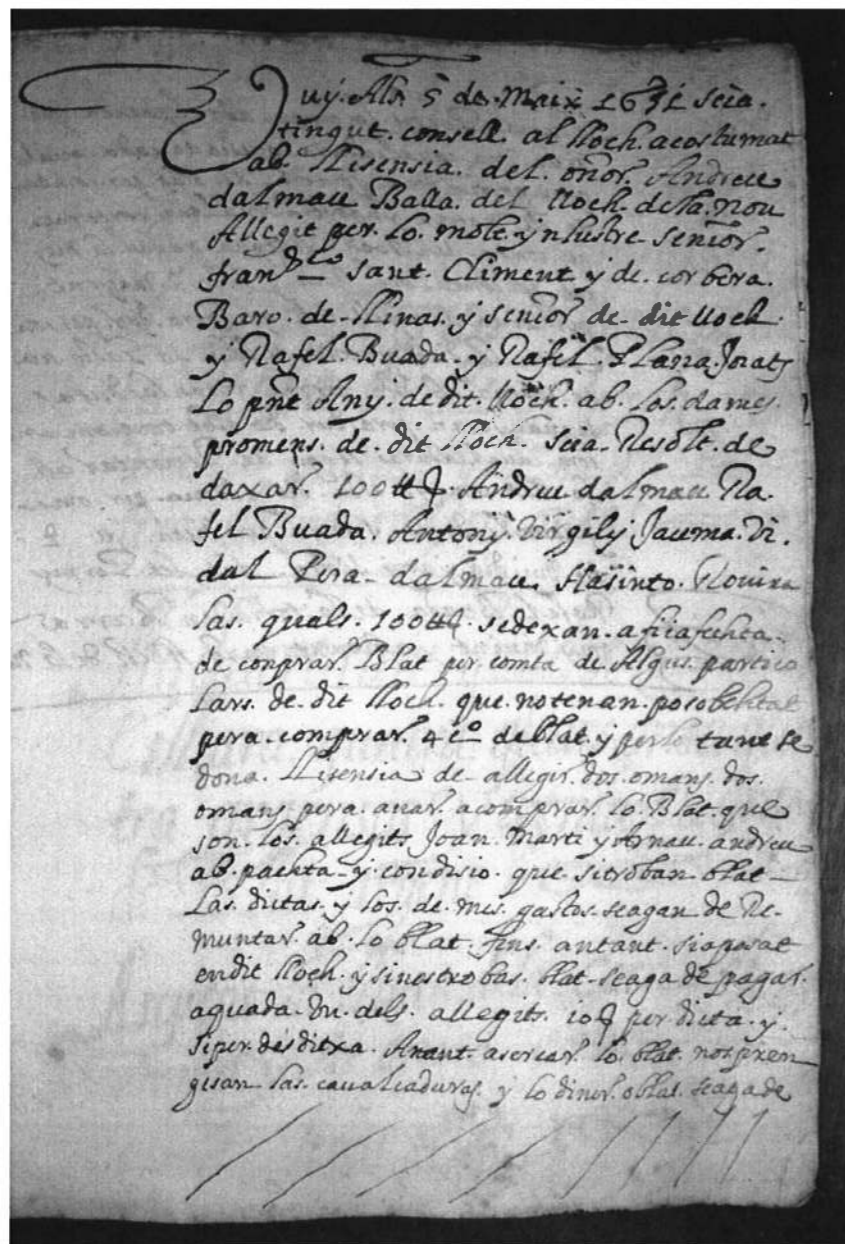 uy. Als 5 de. Maix 1631 seia.
tingut. consell. al lloch. acostumat
ab. llisensia. del. onor. Andreu
dalmau Balla. del lloch. dela. nou
Allegit per. lo. molt. ynlustre. señor.
fran^co sant. Climent y de. corbera.
Baro. de. llinas. y señor de. dit lloch
y Rafel. Buada. y Rafel. Plana. Jorats
Lo pñt Any. de dit. lloch. ab. los. da mes
promens. de. dit lloch. seia. Resolt. de
daxar. 100 ℔ Andreu dalmau Ra.
fel Buada. Antony. Virgily Jauma. Vi.
dal Pera. dalmau. Hasinto. Rovira
las. quals. 100 ℔ se dexan. a fi i a fehta.
de conprar. Blat per. comta de Algus. partico
lars. de dit lloch. que. no tenan. posobehtat
pera. comprar. 4^co de blat. y perlo tant se
dona. llisensia de allegir. dos. omans. dos.
omans pera. anar. a comprar. lo. Blat. que
son. los. allegits Joan. Marti y Arnau. andreu
ab. pachta. y condisio. que si troban blat
Las. dietas. y los. de. mes. gastos. se agan de Re.
muntar. ab. lo blat. fins. antant. sia posat
en dit lloch. y sinestrobas. blat. se aga de pagar.
a quada. hu. dels. allegits. 10 per. dieta. y.
si per. des ditxa. Anant. a sercar. lo. blat. nos pren
gisan las. cavalcaduras. y lo diner. o blat. se aga de